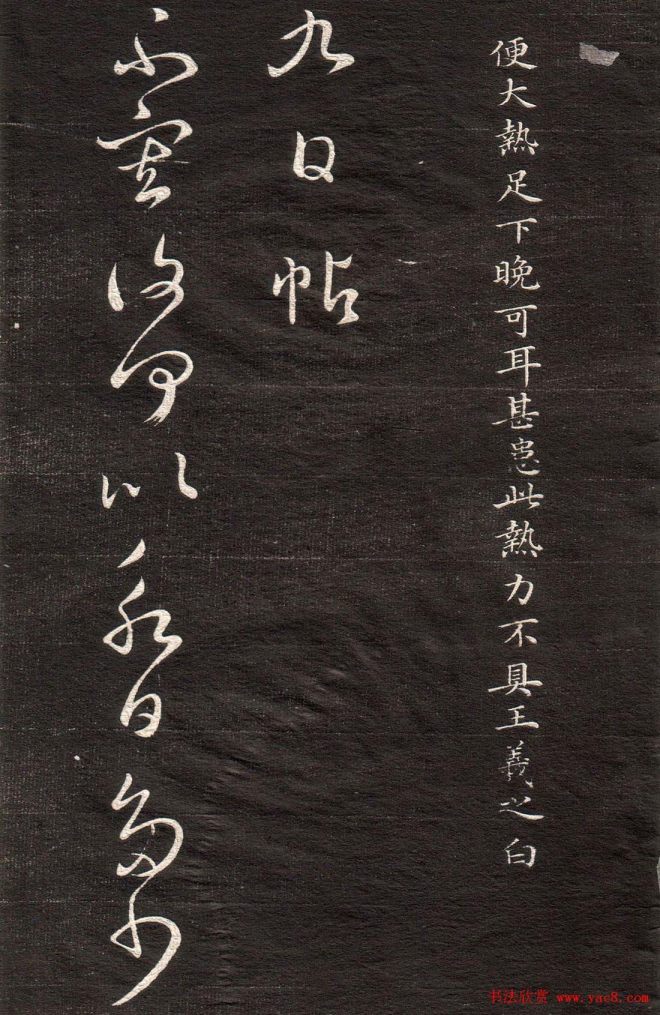 便大熱足下晚可耳甚患此熱力不具王羲之白
九日帖
不審復何以永日多少
书法欣赏 www.yac8.com